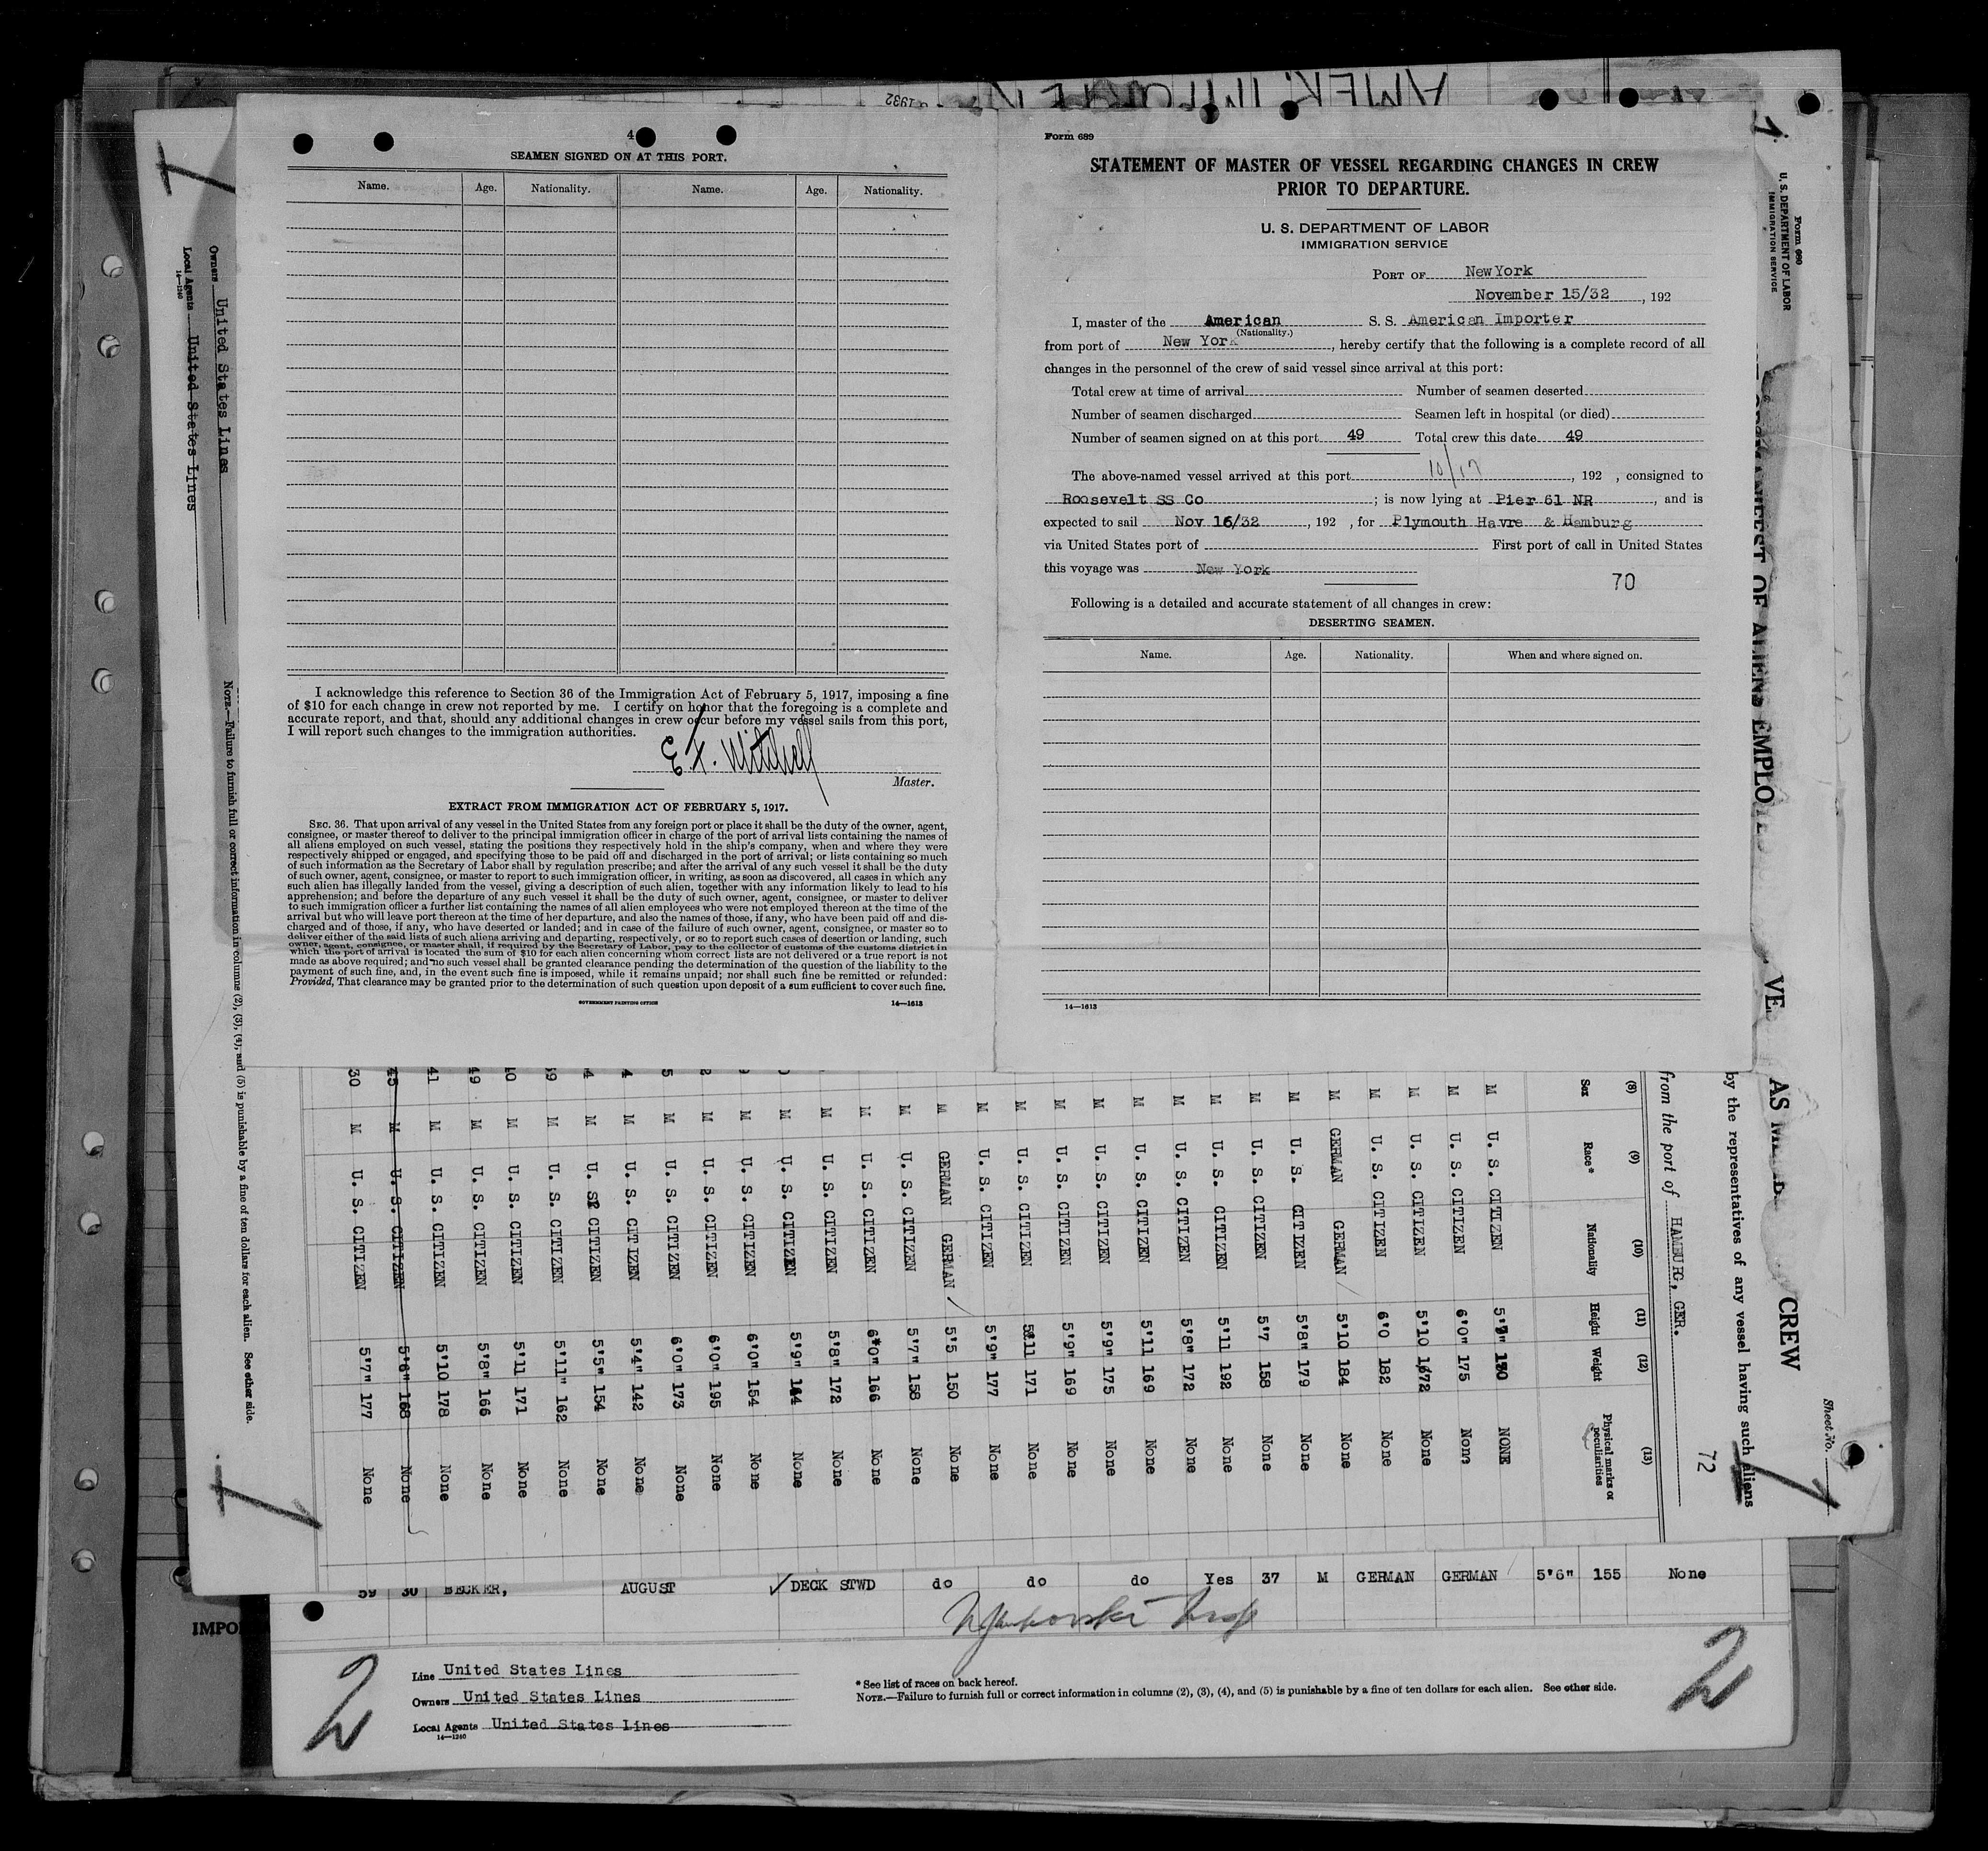 AMER. IMPORTER
1932
4
SEAMEN SIGNED ON AT THIS PORT.
Name. Age. Nationality. Name. Age. Nationality.
I acknowledge this reference to Section 36 of the Immigration Act of February 5, 1917, imposing a fine
of $10 for each change in crew not reported by me. I certify on honor that the foregoing is a complete and
accurate report, and that, should any additional changes in crew occur before my vessel sails from this port,
I will report such changes to the immigration authorities.
E. F. Mitchell
Master.
EXTRACT FROM IMMIGRATION ACT OF FEBRUARY 5, 1917.
SEC. 36. That upon arrival of any vessel in the United States from any foreign port or place it shall be the duty of the owner, agent,
consignee, or master thereof to deliver to the principal immigration officer in charge of the port of arrival lists containing the names of
all aliens employed on such vessel, stating the positions they respectively hold in the ship's company, when and where they were
respectively shipped or engaged, and specifying those to be paid off and discharged in the port of arrival; or lists containing so much
of such information as the Secretary of Labor shall by regulation prescribe; and after the arrival of any such vessel it shall be the duty
of such owner, agent, consignee, or master to report to such immigration officer, in writing, as soon as discovered, all cases in which any
such alien has illegally landed from the vessel, giving a description of such alien, together with any information likely to lead to his
apprehension; and before the departure of any such vessel it shall be the duty of such owner, agent, consignee, or master to deliver
to such immigration officer a further list containing the names of all alien employees who were not employed thereon at the time of the
arrival but who will leave port thereon at the time of her departure, and also the names of those, if any, who have been paid off and dis-
charged and of those, if any, who have deserted or landed; and in case of the failure of such owner, agent, consignee, or master so to
deliver either of the said lists of such aliens arriving and departing, respectively, or so to report such cases of desertion or landing, such
owner, agent, consignee, or master shall, if required by the Secretary of Labor, pay to the collector of customs of the customs district in
which the port of arrival is located the sum of $10 for each alien concerning whom correct lists are not delivered or a true report is not
made as above required; and no such vessel shall be granted clearance pending the determination of the question of the liability to the
payment of such fine, and, in the event such fine is imposed, while it remains unpaid; nor shall such fine be remitted or refunded:
Provided, That clearance may be granted prior to the determination of such question upon deposit of a sum sufficient to cover such fine.
GOVERNMENT PRINTING OFFICE 14—1613
Form 689
STATEMENT OF MASTER OF VESSEL REGARDING CHANGES IN CREW
PRIOR TO DEPARTURE.
U. S. DEPARTMENT OF LABOR
IMMIGRATION SERVICE
PORT OF New York
November 15/32, 192
I, master of the American S. S. American Importer
(Nationality.)
from port of New York, hereby certify that the following is a complete record of all
changes in the personnel of the crew of said vessel since arrival at this port:
Total crew at time of arrival Number of seamen deserted
Number of seamen discharged Seamen left in hospital (or died)
Number of seamen signed on at this port 49 Total crew this date 49
The above-named vessel arrived at this port 10/17, 192 , consigned to
Roosevelt SS Co; is now lying at Pier 61 NR, and is
expected to sail Nov 16/32, 192 , for Plymouth Havre & Hamburg
via United States port of First port of call in United States
this voyage was New York
70
Following is a detailed and accurate statement of all changes in crew:
DESERTING SEAMEN.
Name. Age. Nationality. When and where signed on.
14—1613
Form 680
U. S. DEPARTMENT OF LABOR
IMMIGRATION SERVICE
MANIFEST OF ALIENS EMPLO
VE
AS M
CREW
Sheet No.
by the representatives of any vessel having such aliens
from the port of HAMBURG, GER.
72
(8) (9) (10) (11) (12) (13)
Sex Race* Nationality Height Weight Physical marks or peculiarities
M U. S. CITIZEN 5'9" 130 NONE
M U. S. CITIZEN 6'0" 175 None
M U. S. CITIZEN 5'10 172 None
M U. S. CITIZEN 6'0 182 None
M GERMAN GERMAN 5'10 184 None
M U. S. CITIZEN 5'8" 179 None
M U. S. CITIZEN 5'7 158 None
M U. S. CITIZEN 5'11 192 None
M U. S. CITIZEN 5'8" 172 None
M U. S. CITIZEN 5'11 169 None
M U. S. CITIZEN 5'9" 175 None
M U. S. CITIZEN 5'9" 169 None
M U. S. CITIZEN 5'11 171 None
M U. S. CITIZEN 5'9" 177 None
M GERMAN GERMAN 5'5 150 None
M U. S. CITIZEN 5'7" 158 None
M U. S. CITIZEN 6'0" 166 None
M U. S. CITIZEN 5'8" 172 None
M U. S. CITIZEN 5'9" 144 None
M U. S. CITIZEN 6'0" 154 None
2 M U. S. CITIZEN 6'0" 195 None
5 M U. S. CITIZEN 6'0" 173 None
4 M U. S. CITIZEN 5'4" 142 None
4 M U. S. CITIZEN 5'5" 154 None
9 M U. S. CITIZEN 5'11" 162 None
0 M U. S. CITIZEN 5'11 171 None
49 M U. S. CITIZEN 5'8" 166 None
41 M U. S. CITIZEN 5'10 178 None
45 M U. S. CITIZEN 5'6" 168 None
30 M U. S. CITIZEN 5'7" 177 None
Owners United States Lines
Local Agents United States Lines
14—1240
NOTE.—Failure to furnish full or correct information in columns (2), (3), (4), and (5) is punishable by a fine of ten dollars for each alien. See other side.
1
1
1
1
59 30 BECKER, AUGUST ✓ DECK STWD do do do Yes 37 M GERMAN GERMAN 5'6" 155 None
IMPO
2
Line United States Lines
Owners United States Lines
Local Agents United States Lines
14—1240
* See list of races on back hereof.
NOTE.—Failure to furnish full or correct information in columns (2), (3), (4), and (5) is punishable by a fine of ten dollars for each alien. See other side.
2